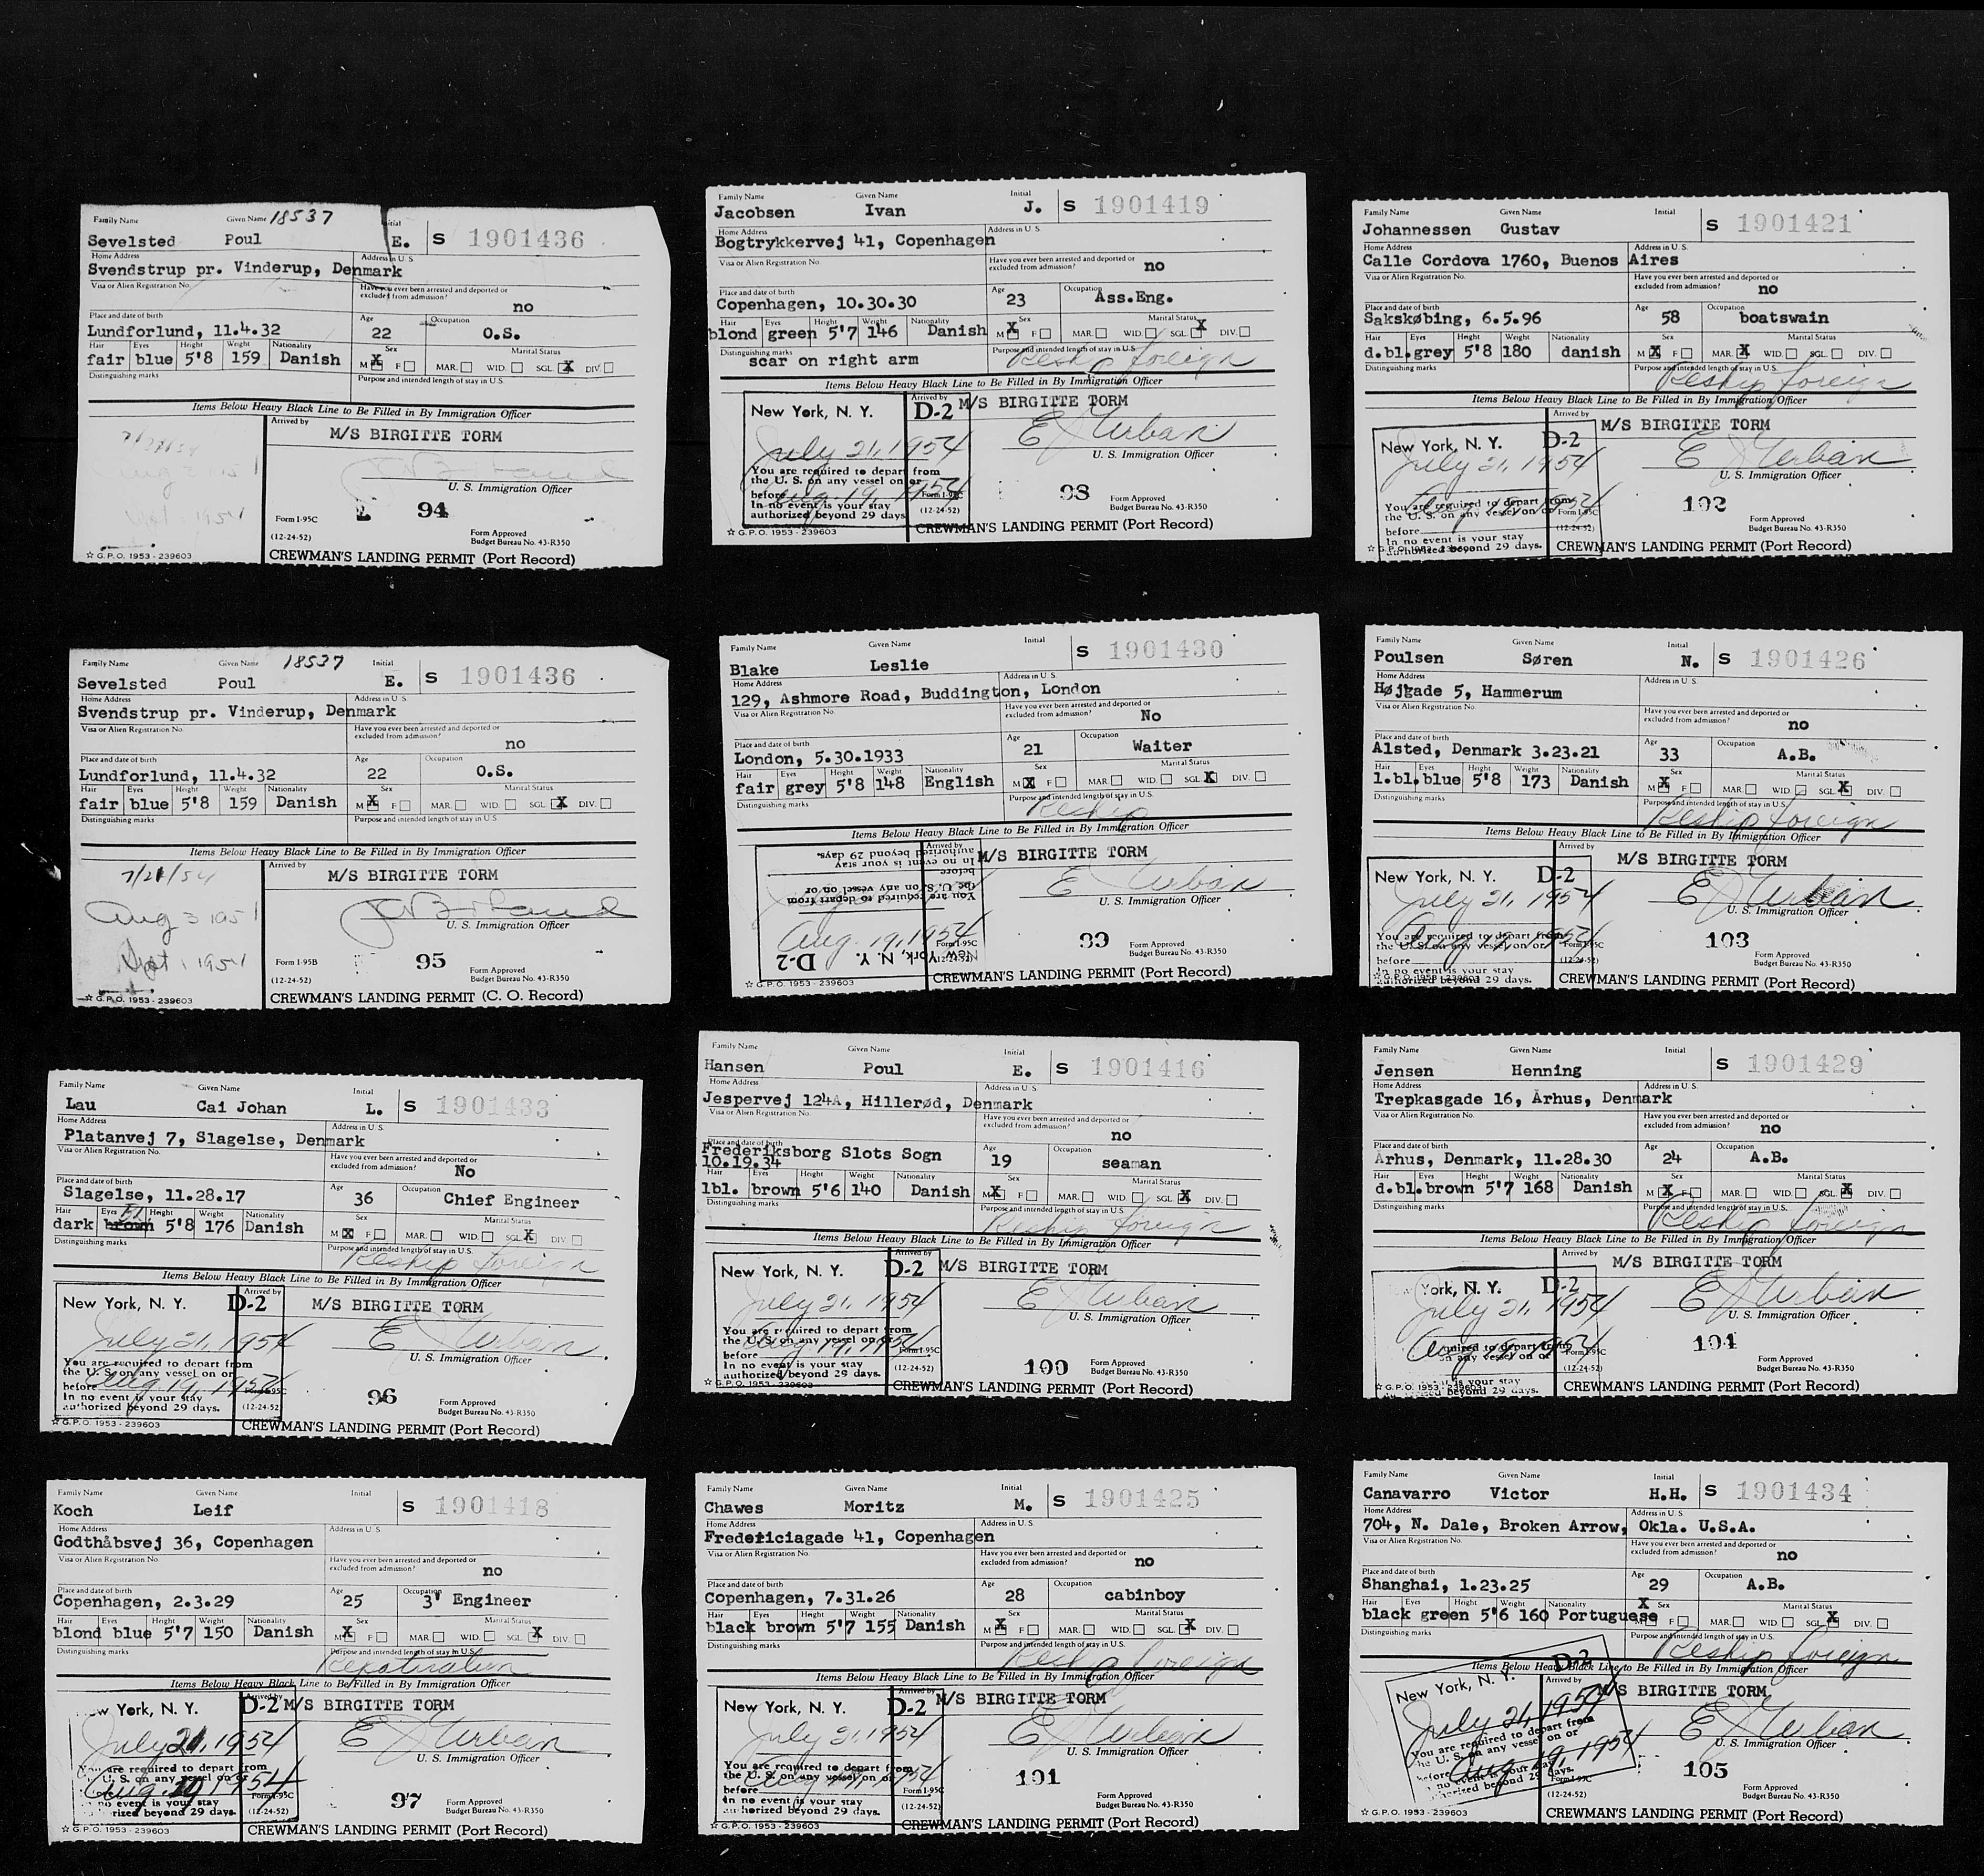 Family Name Given Name 18537 Initial
Sevelsted Poul E. S 1901436
Home Address Address in U.S.
Svendstrup pr. Vinderup, Denmark
Visa or Alien Registration No. Have you ever been arrested and deported or excluded from admission?
no
Place and date of birth Age Occupation
Lundforlund, 11.4.32 22 O.S.
Hair Eyes Height Weight Nationality Sex Marital Status
fair blue 5'8 159 Danish M X F MAR. WID. SGL. X DIV.
Distinguishing marks Purpose and intended length of stay in U.S.
Items Below Heavy Black Line to Be Filled in By Immigration Officer
Arrived by
M/S BIRGITTE TORM
U. S. Immigration Officer
94
Form I-95C
(12-24-52)
Form Approved
Budget Bureau No. 43-R350
☆ G.P.O. 1953 - 239603
CREWMAN'S LANDING PERMIT (Port Record)
Family Name Given Name 18537 Initial
Sevelsted Poul E. S 1901436
Home Address Address in U.S.
Svendstrup pr. Vinderup, Denmark
Visa or Alien Registration No. Have you ever been arrested and deported or excluded from admission?
no
Place and date of birth Age Occupation
Lundforlund, 11.4.32 22 O.S.
Hair Eyes Height Weight Nationality Sex Marital Status
fair blue 5'8 159 Danish M X F MAR. WID. SGL. X DIV.
Distinguishing marks Purpose and intended length of stay in U.S.
Items Below Heavy Black Line to Be Filled in By Immigration Officer
Arrived by
7/21/54 M/S BIRGITTE TORM
Aug 3 1951
U. S. Immigration Officer
Sept 1 1954
95
Form I-95B
(12-24-52)
Form Approved
Budget Bureau No. 43-R350
☆ G.P.O. 1953 - 239603
CREWMAN'S LANDING PERMIT (C. O. Record)
Family Name Given Name Initial
Lau Cai Johan L. S 1901433
Home Address Address in U.S.
Platanvej 7, Slagelse, Denmark
Visa or Alien Registration No. Have you ever been arrested and deported or excluded from admission?
No
Place and date of birth Age Occupation
Slagelse, 11.28.17 36 Chief Engineer
Hair Eyes Height Weight Nationality Sex Marital Status
dark brown Bl 5'8 176 Danish M X F MAR. WID. SGL. X DIV.
Distinguishing marks Purpose and intended length of stay in U.S.
Reship foreign
Items Below Heavy Black Line to Be Filled in By Immigration Officer
Arrived by
New York, N. Y. D-2 M/S BIRGITTE TORM
July 21, 1954 E J Urban
U. S. Immigration Officer
You are required to depart from
the U. S. on any vessel on or
before Aug. 19, 1954
In no event is your stay
authorized beyond 29 days.
Form I-95C
(12-24-52
96
Form Approved
Budget Bureau No. 43-R350
☆ G.P.O. 1953 - 239603
CREWMAN'S LANDING PERMIT (Port Record)
Family Name Given Name Initial
Koch Leif S 1901418
Home Address Address in U.S.
Godthåbsvej 36, Copenhagen
Visa or Alien Registration No. Have you ever been arrested and deported or excluded from admission?
no
Place and date of birth Age Occupation
Copenhagen, 2.3.29 25 3' Engineer
Hair Eyes Height Weight Nationality Sex Marital Status
blond blue 5'7 150 Danish M X F MAR. WID. SGL. X DIV.
Distinguishing marks Purpose and intended length of stay in U.S.
Repatriation
Items Below Heavy Black Line to Be Filled in By Immigration Officer
Arrived by
York, N. Y. D-2 M/S BIRGITTE TORM
July 21, 1954 E J Urban
U. S. Immigration Officer
You are required to depart from
U. S. on any vessel on or
Aug. 19, 1954
no event is your stay
rized beyond 29 days.
Form I-95C
(12-24-52)
97
Form Approved
Budget Bureau No. 43-R350
☆ G.P.O. 1953 - 239603
CREWMAN'S LANDING PERMIT (Port Record)
Family Name Given Name Initial
Jacobsen Ivan J. S 1901419
Home Address Address in U.S.
Bogtrykkervej 41, Copenhagen
Visa or Alien Registration No. Have you ever been arrested and deported or excluded from admission?
no
Place and date of birth Age Occupation
Copenhagen, 10.30.30 23 Ass.Eng.
Hair Eyes Height Weight Nationality Sex Marital Status
blond green 5'7 146 Danish M X F MAR. WID. SGL. X DIV.
Distinguishing marks Purpose and intended length of stay in U.S.
scar on right arm Reship foreign
Items Below Heavy Black Line to Be Filled in By Immigration Officer
Arrived by
New York, N. Y. D-2 M/S BIRGITTE TORM
July 21, 1954 E J Urban
U. S. Immigration Officer
You are required to depart from
the U. S. on any vessel on or
before Aug. 19, 1954
In no event is your stay
authorized beyond 29 days
Form I-95C
(12-24-52)
98
Form Approved
Budget Bureau No. 43-R350
☆ G.P.O. 1953 - 239603
CREWMAN'S LANDING PERMIT (Port Record)
Family Name Given Name Initial
Blake Leslie S 1901430
Home Address Address in U.S.
129, Ashmore Road, Buddington, London
Visa or Alien Registration No. Have you ever been arrested and deported or excluded from admission?
No
Place and date of birth Age Occupation
London, 5.30.1933 21 Waiter
Hair Eyes Height Weight Nationality Sex Marital Status
fair grey 5'8 148 English M X F MAR. WID. SGL. X DIV.
Distinguishing marks Purpose and intended length of stay in U.S.
Reship
Items Below Heavy Black Line to Be Filled in By Immigration Officer
Arrived by
M/S BIRGITTE TORM
E J Urban
U. S. Immigration Officer
New York, N. Y. D-2
You are required to depart from
the U. S. on any vessel on or
before
In no event is your stay
authorized beyond 29 days.
Aug. 19, 1954
Form I-95C
(12-24-52)
99
Form Approved
Budget Bureau No. 43-R350
☆ G.P.O. 1953 - 239603
CREWMAN'S LANDING PERMIT (Port Record)
Family Name Given Name Initial
Hansen Poul E. S 1901416
Home Address Address in U.S.
Jespervej 124A, Hillerød, Denmark
Visa or Alien Registration No. Have you ever been arrested and deported or excluded from admission?
no
Place and date of birth Age Occupation
Frederiksborg Slots Sogn 19 seaman
10.19.34
Hair Eyes Height Weight Nationality Sex Marital Status
lbl. brown 5'6 140 Danish M X F MAR. WID. SGL. X DIV.
Distinguishing marks Purpose and intended length of stay in U.S.
Reship foreign
Items Below Heavy Black Line to Be Filled in By Immigration Officer
Arrived by
New York, N. Y. D-2 M/S BIRGITTE TORM
July 21, 1954 E J Urban
U. S. Immigration Officer
You are required to depart from
the U. S. on any vessel on or
before Aug. 19, 1954
In no event is your stay
authorized beyond 29 days.
Form I-95C
(12-24-52)
100
Form Approved
Budget Bureau No. 43-R350
☆ G.P.O. 1953 - 239603
CREWMAN'S LANDING PERMIT (Port Record)
Family Name Given Name Initial
Chawes Moritz M. S 1901425
Home Address Address in U.S.
Fredericiagade 41, Copenhagen
Visa or Alien Registration No. Have you ever been arrested and deported or excluded from admission?
no
Place and date of birth Age Occupation
Copenhagen, 7.31.26 28 cabinboy
Hair Eyes Height Weight Nationality Sex Marital Status
black brown 5'7 155 Danish M X F MAR. WID. SGL. X DIV.
Distinguishing marks Purpose and intended length of stay in U.S.
Reship foreign
Items Below Heavy Black Line to Be Filled in By Immigration Officer
Arrived by
New York, N. Y. D-2 M/S BIRGITTE TORM
July 21, 1954 E J Urban
U. S. Immigration Officer
You are required to depart from
the U. S. on any vessel on or
before Aug. 19, 1954
In no event is your stay
authorized beyond 29 days.
Form I-95C
(12-24-52)
101
Form Approved
Budget Bureau No. 43-R350
☆ G.P.O. 1953 - 239603
CREWMAN'S LANDING PERMIT (Port Record)
Family Name Given Name Initial
Johannessen Gustav S 1901421
Home Address Address in U.S.
Calle Cordova 1760, Buenos Aires
Visa or Alien Registration No. Have you ever been arrested and deported or excluded from admission?
no
Place and date of birth Age Occupation
Sakskøbing, 6.5.96 58 boatswain
Hair Eyes Height Weight Nationality Sex Marital Status
d.bl. grey 5'8 180 danish M X F MAR. X WID. SGL. DIV.
Distinguishing marks Purpose and intended length of stay in U.S.
Reship foreign
Items Below Heavy Black Line to Be Filled in By Immigration Officer
Arrived by
New York, N. Y. D-2 M/S BIRGITTE TORM
July 21, 1954 E J Urban
U. S. Immigration Officer
Aug. 19, 1954
You are required to depart from
the U. S. on any vessel on or
before
In no event is your stay
authorized beyond 29 days.
Form I-95C
(12-24-52)
102
Form Approved
Budget Bureau No. 43-R350
☆ G.P.O. 1953 - 239603
CREWMAN'S LANDING PERMIT (Port Record)
Family Name Given Name Initial
Poulsen Søren N. S 1901426
Home Address Address in U.S.
Højgade 5, Hammerum
Visa or Alien Registration No. Have you ever been arrested and deported or excluded from admission?
no
Place and date of birth Age Occupation
Alsted, Denmark 3.23.21 33 A.B.
Hair Eyes Height Weight Nationality Sex Marital Status
l.bl. blue 5'8 173 Danish M X F MAR. WID. SGL. X DIV.
Distinguishing marks Purpose and intended length of stay in U.S.
Reship foreign
Items Below Heavy Black Line to Be Filled in By Immigration Officer
Arrived by
New York, N. Y. D-2 M/S BIRGITTE TORM
July 21, 1954 E J Urban
U. S. Immigration Officer
Aug. 19, 1954
You are required to depart from
the U. S. on any vessel on or
before
In no event is your stay
authorized beyond 29 days.
Form I-95C
(12-24-52)
103
Form Approved
Budget Bureau No. 43-R350
☆ G.P.O. 1953 - 239603
CREWMAN'S LANDING PERMIT (Port Record)
Family Name Given Name Initial
Jensen Henning S 1901429
Home Address Address in U.S.
Trepkasgade 16, Århus, Denmark
Visa or Alien Registration No. Have you ever been arrested and deported or excluded from admission?
no
Place and date of birth Age Occupation
Århus, Denmark, 11.28.30 24 A.B.
Hair Eyes Height Weight Nationality Sex Marital Status
d.bl. brown 5'7 168 Danish M X F MAR. WID. SGL. X DIV.
Distinguishing marks Purpose and intended length of stay in U.S.
Reship foreign
Items Below Heavy Black Line to Be Filled in By Immigration Officer
Arrived by
York, N. Y. D-2 M/S BIRGITTE TORM
July 21, 1954 E J Urban
U. S. Immigration Officer
Aug. 19, 1954
quired to depart from
on any vessel on or
is your stay
beyond 29 days.
Form I-95C
(12-24-52)
104
Form Approved
Budget Bureau No. 43-R350
☆ G.P.O. 1953 - 239603
CREWMAN'S LANDING PERMIT (Port Record)
Family Name Given Name Initial
Canavarro Victor H.H. S 1901434
Home Address Address in U.S.
704, N. Dale, Broken Arrow, Okla. U.S.A.
Visa or Alien Registration No. Have you ever been arrested and deported or excluded from admission?
no
Place and date of birth Age Occupation
Shanghai, 1.23.25 29 A.B.
Hair Eyes Height Weight Nationality Sex Marital Status
black green 5'6 160 Portuguese M X F MAR. WID. SGL. X DIV.
Distinguishing marks Purpose and intended length of stay in U.S.
Reship foreign
Items Below Heavy Black Line to Be Filled in By Immigration Officer
Arrived by
New York, N. Y. D-2 M/S BIRGITTE TORM
July 21, 1954 E J Urban
U. S. Immigration Officer
You are required to depart from
the U. S. on any vessel on or
before Aug. 19, 1954
no event is your stay
rized beyond 29 days.
Form I-95C
(12-24-52)
105
Form Approved
Budget Bureau No. 43-R350
☆ G.P.O. 1953 - 239603
CREWMAN'S LANDING PERMIT (Port Record)